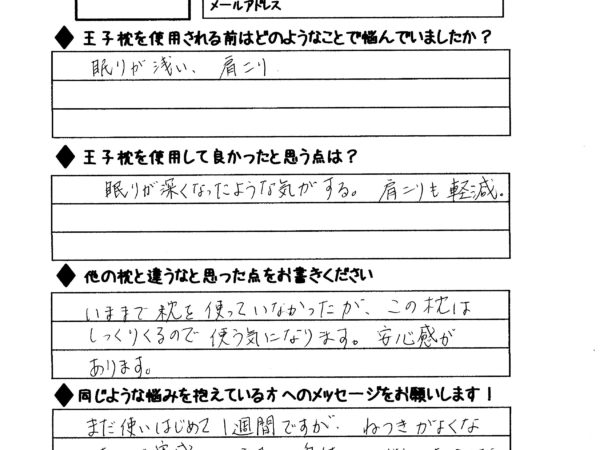 メールアドレス
◆王子枕を使用される前はどのようなことで悩んでいましたか？
眠りが浅い、肩こり
◆王子枕を使用して良かったと思う点は？
眠りが深くなったような気がする。肩こりも軽減。
◆他の枕と違うなと思った点をお書きください
いままで枕を使っていなかったが、この枕は
しっくりくるので使う気になります。安心感が
あります。
◆同じような悩みを抱えている方へのメッセージをお願いします！
まだ使いはじめて1週間ですが、ねつきがよくな